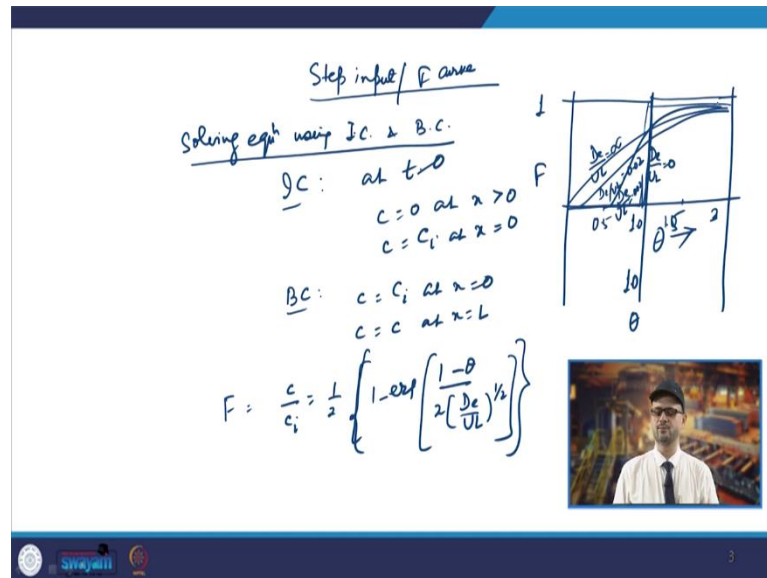 Step input / F curve
Solving eqn using I.C. & B.C.
IC : at t=0
c=0 at x>0
c = Ci at x=0
BC : c = Ci at x=0
c = c at x=L
F = c/ci = 1/2 { 1-erf [ 1-θ / 2(De/UL)^1/2 ] }
1
F
De/UL=∞
De/UL=0.02
De/UL
De/UL=0
0.5
1.0
1.5
2
θ →
10
θ
swayam
3